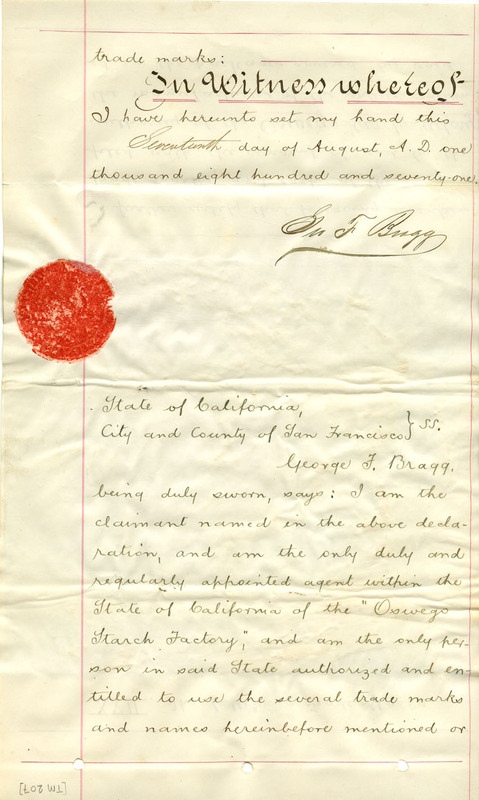 trade marks:
In Witness whereof
I have hereunto set my hand this
Seventeenth day of August, A. D. one
thousand eight hundred and seventy-one.
Geo F Bragg
State of California,
City and County of San Francisco } SS.
George F. Bragg,
being duly sworn, says: I am the
claimant named in the above decla-
ration, and am the only duly and
regularly appointed agent within the
State of California of the "Oswego
Starch Factory", and am the only per-
son in said State authorized and en-
titled to use the several trade marks
and names hereinbefore mentioned or
[TM 207]